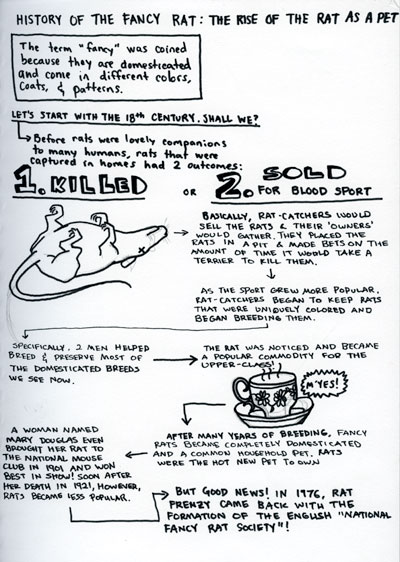 HISTORY OF THE FANCY RAT: THE RISE OF THE RAT AS A PET
The term "fancy" was coined
because they are domesticated
and come in different colors,
coats, & patterns.
LET'S START WITH THE 18th CENTURY. SHALL WE?
Before rats were lovely companions
to many humans, rats that were
captured in homes had 2 outcomes:
1. KILLED OR 2. SOLD
FOR BLOOD SPORT
BASICALLY, RAT-CATCHERS WOULD
SELL THE RATS & THEIR 'OWNERS'
WOULD GATHER. THEY PLACED THE
RATS IN A PIT & MADE BETS ON THE
AMOUNT OF TIME IT WOULD TAKE A
TERRIER TO KILL THEM.
AS THE SPORT GREW MORE POPULAR,
RAT-CATCHERS BEGAN TO KEEP RATS
THAT WERE UNIQUELY COLORED AND
BEGAN BREEDING THEM.
SPECIFICALLY, 2 MEN HELPED
BREED & PRESERVE MOST OF
THE DOMESTICATED BREEDS
WE SEE NOW.
THE RAT WAS NOTICED AND BECAME
A POPULAR COMMODITY FOR THE
UPPER-CLASS!
M'YES!
AFTER MANY YEARS OF BREEDING, FANCY
RATS BECAME COMPLETELY DOMESTICATED
AND A COMMON HOUSEHOLD PET. RATS
WERE THE HOT NEW PET TO OWN
A WOMAN NAMED
MARY DOUGLAS EVEN
BROUGHT HER RAT TO
THE NATIONAL MOUSE
CLUB IN 1901 AND WON
BEST IN SHOW! SOON AFTER
HER DEATH IN 1921, HOWEVER,
RATS BECAME LESS POPULAR.
BUT GOOD NEWS! IN 1976, RAT
FRENZY CAME BACK WITH THE
FORMATION OF THE ENGLISH "NATIONAL
FANCY RAT SOCIETY"!